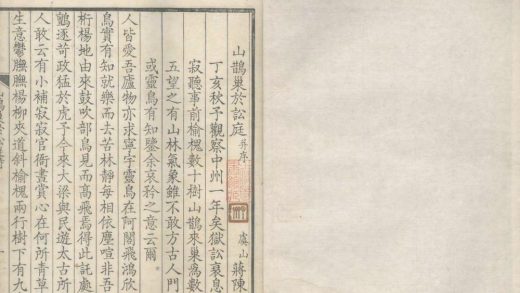 山鵲巢於訟庭 并序
虞山 蔣陳
丁亥秋予觀察中州一年矣獄訟衰息
寂聽事前榆槐數十樹山鵲來巢為數
五望之有山林氣象雖不敢方古人門
或靈鳥有知鑒余哀矜之意云爾。
人皆愛吾廬物亦求寧宇靈鳥在阿閣飛鴻欣
鳥實有知就樂而去苦林靜每相依塵喧非吾
桁楊地由來鼓吹部鳥見而高飛焉得此託處
鸇逐苛政猛於虎予今來大梁與民遊太古所
人敢云有小補寂寂官衙晝賞心在何所青草
生意鬱膴膴楊柳夾道斜榆槐兩行樹下有九